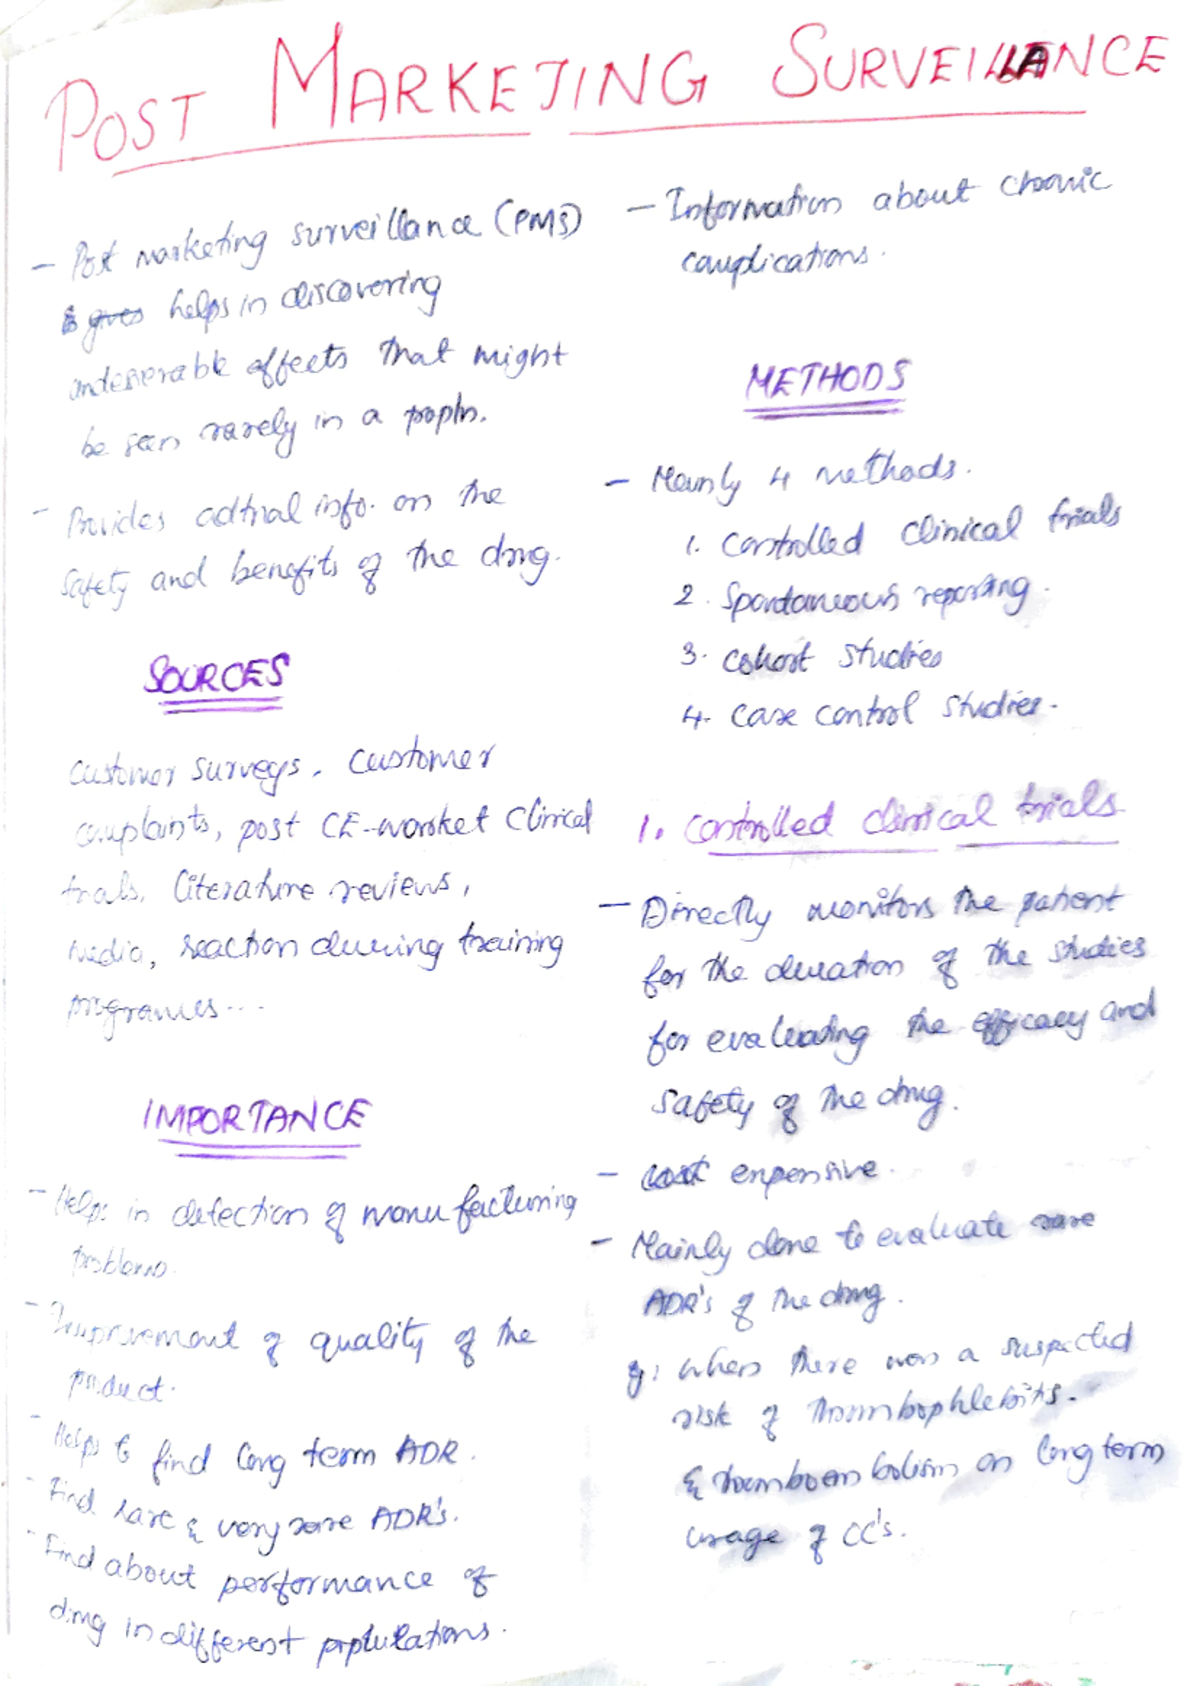 POST MARKETING SURVEILLANCE
- Post marketing surveillance (PMS)
helps in discovering
undesirable effects that might
be seen rarely in a popln.
- Provides adtnal info. on the
safety and benefits of the drug.
SOURCES
customer surveys, customer
complaints, post CE-market clinical
trials, literature reviews,
media, reaction during training
programmes...
IMPORTANCE
- Helps in detection of manufacturing
problems.
- Improvement of quality of the
product.
- Helps to find long term ADR.
- Find rare & very rare ADR's.
- Find about performance of
drug in different poplulations.
- Information about chronic
complications.
METHODS
- Mainly 4 methods.
1. controlled clinical trials
2. Spontaneous reporting.
3. cohort studies
4. case control studies.
1. controlled clinical trials
- Directly monitors the patient
for the duration of the studies
for evaluating the efficacy and
safety of the drug.
- cost expensive.
- Mainly done to evaluate rare
ADR's of the drug.
eg: when there was a suspected
risk of thrombophlebitis.
& thromboembolism on long term
usage of CC's.